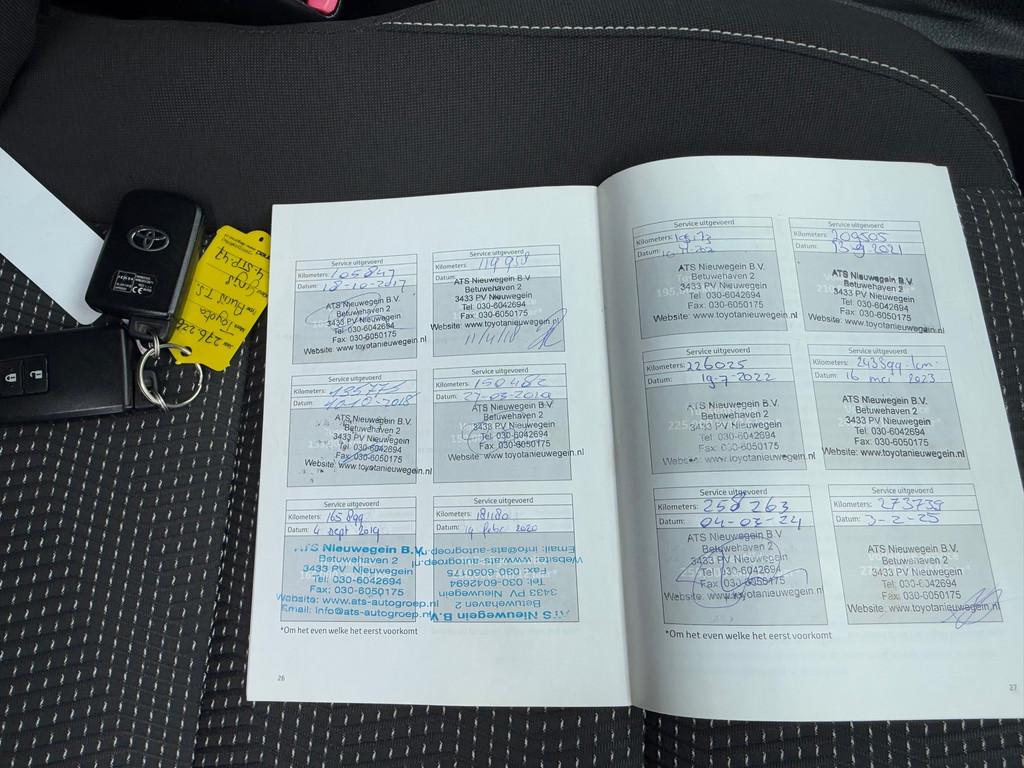 Toyota
276.226
Service uitgevoerd
Kilometers: 105847
Datum: 18-10-2017
ATS Nieuwegein B.V.
Betuwehaven 2
3433 PV Nieuwegein
Tel: 030-6042694
Fax: 030-6050175
Website: www.toyotanieuwegein.nl
Service uitgevoerd
Kilometers: 114958
Datum:
ATS Nieuwegein B.V.
Betuwehaven 2
3433 PV Nieuwegein
Tel: 030-6042694
Fax: 030-6050175
Website: www.toyotanieuwegein.nl
11/4/18
Service uitgevoerd
Kilometers:
Datum:
ATS Nieuwegein B.V.
Betuwehaven 2
3433 PV Nieuwegein
Tel: 030-6042694
Fax: 030-6050175
Website: www.toyotanieuwegein.nl
Service uitgevoerd
Kilometers: 150482
Datum: 27-03-2019
ATS Nieuwegein B.V.
Betuwehaven 2
3433 PV Nieuwegein
Tel: 030-6042694
Fax: 030-6050175
Website: www.toyotanieuwegein.nl
Service uitgevoerd
Kilometers:
Datum: 4 sept 2019
ATS Nieuwegein B.V.
Betuwehaven 2
3433 PV Nieuwegein
Tel: 030-6042694
Fax: 030-6050175
Website: www.ats-autogroep.nl
Email: info@ats-autogroep.nl
Service uitgevoerd
Kilometers: 181180
Datum: 14 febr 2020
ATS Nieuwegein B.V.
Betuwehaven 2
3433 PV Nieuwegein
Tel: 030-6042694
Fax: 030-6050175
Website: www.ats-autogroep.nl
Email: info@ats-autogroep.nl
*Om het even welke het eerst voorkomt
26
Service uitgevoerd
Kilometers:
Datum:
ATS Nieuwegein B.V.
Betuwehaven 2
3433 PV Nieuwegein
Tel: 030-6042694
Fax: 030-6050175
Website: www.toyotanieuwegein.nl
Service uitgevoerd
Kilometers: 209505
Datum: 13-9-2021
ATS Nieuwegein B.V.
Betuwehaven 2
3433 PV Nieuwegein
Tel: 030-6042694
Fax: 030-6050175
Website: www.toyotanieuwegein.nl
Service uitgevoerd
Kilometers: 226025
Datum: 19-7-2022
ATS Nieuwegein B.V.
Betuwehaven 2
3433 PV Nieuwegein
Tel: 030-6042694
Fax: 030-6050175
Website: www.toyotanieuwegein.nl
Service uitgevoerd
Kilometers: 243899 km
Datum: 16 mei 2023
ATS Nieuwegein B.V.
Betuwehaven 2
3433 PV Nieuwegein
Tel: 030-6042694
Fax: 030-6050175
Website: www.toyotanieuwegein.nl
Service uitgevoerd
Kilometers: 258263
Datum: 04-03-24
ATS Nieuwegein B.V.
Betuwehaven 2
3433 PV Nieuwegein
Tel: 030-6042694
Fax: 030-6050175
Website: www.toyotanieuwegein.nl
Service uitgevoerd
Kilometers: 273739
Datum: 3-2-25
ATS Nieuwegein B.V.
Betuwehaven 2
3433 PV Nieuwegein
Tel: 030-6042694
Fax: 030-6050175
Website: www.toyotanieuwegein.nl
*Om het even welke het eerst voorkomt
27